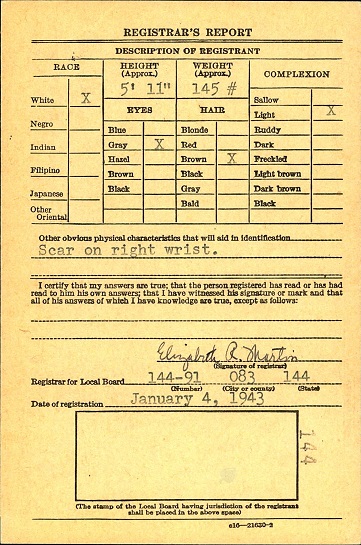 REGISTRAR'S REPORT
DESCRIPTION OF REGISTRANT
RACE
HEIGHT (Approx.)
WEIGHT (Approx.)
COMPLEXION
5' 11"
145 #
EYES
HAIR
White X
Negro
Indian
Filipino
Japanese
Other Oriental
Blue
Gray X
Hazel
Brown
Black
Blonde
Red
Brown X
Black
Gray
Bald
Sallow
Light X
Ruddy
Dark
Freckled
Light brown
Dark brown
Black
Other obvious physical characteristics that will aid in identification
Scar on right wrist.
I certify that my answers are true; that the person registered has read or has had
read to him his own answers; that I have witnessed his signature or mark and that
all of his answers of which I have knowledge are true, except as follows:
Elizabeth R. Martin
(Signature of registrar)
Registrar for Local Board 144-91 083 144
(Number) (City or county) (State)
Date of registration January 4, 1943
144
(The stamp of the Local Board having jurisdiction of the registrant
shall be placed in the above space)
c16—21630-2